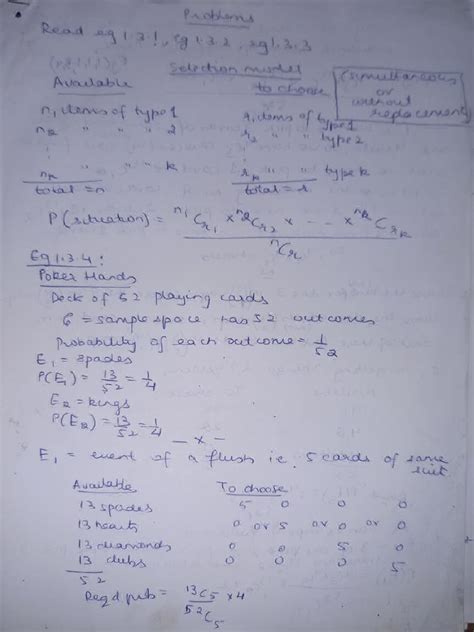 Problems
Read eg 1.3.1, eg 1.3.2, eg 1.3.3
Selection model
(simultaneous
or
without
replacement)
Available to choose
n₁ items of type 1 r₁ items of type 1
n₂ " " " 2 r₂ " " type 2
nₖ " " " k rₖ " " type k
total = n total = r
P(situation) = ⁿ¹Cr₁ × ⁿ²Cr₂ × - - × ⁿᵏCrₖ
ⁿCr
Eg 1.3.4:
Poker Hands
Deck of 52 playing cards
G = sample space has 52 outcomes
Probability of each outcome = 1/52
E₁ = spades
P(E₁) = 13/52 = 1/4
E₂ = kings
P(E₂) = 13/52 = 1/4
— x —
E₁ = event of a flush i.e. 5 cards of same
suit
Available To choose
13 spades 5 0 0 0
13 hearts 0 or 5 or 0 or 0
13 diamonds 0 0 5 0
13 clubs 0 0 0 5
52
Reqd prob = ¹³C₅ / ⁵²C₅ × 4